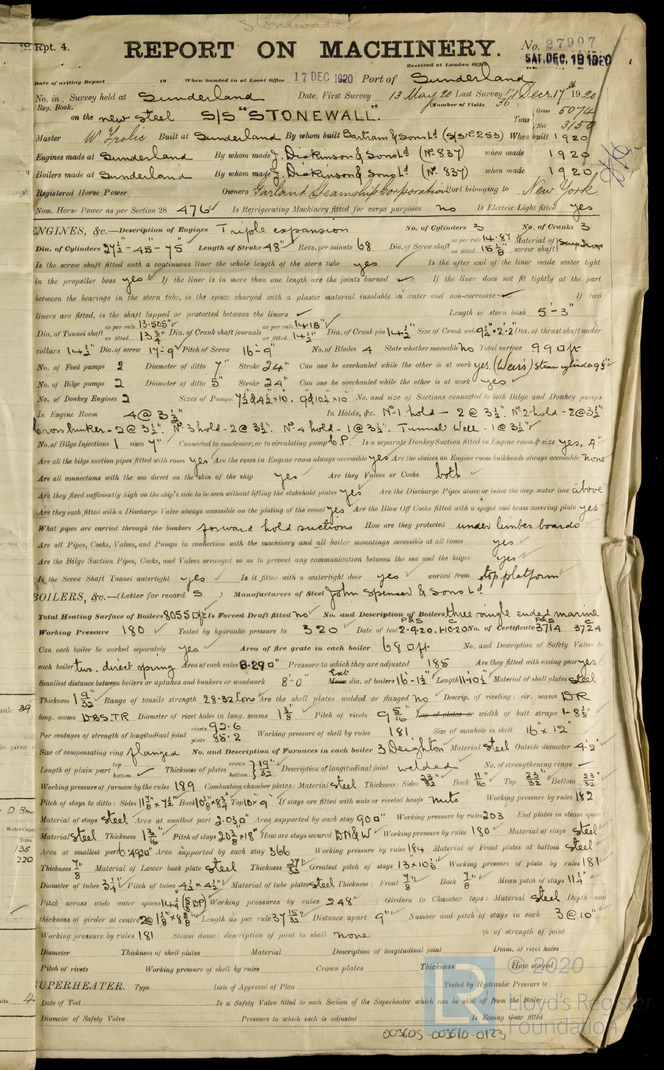 Stonewall
Rpt. 4.
REPORT ON MACHINERY.
No. 27997
Received at London Office SAT. DEC. 18 1920
Date of writing Report 19 When handed in at Local Office 17 DEC 1920 Port of Sunderland
No. in Survey held at Sunderland Date, First Survey 13 May 20 Last Survey 17th Decr. 1920
Reg. Book. (Number of Visits 36
on the new steel S/S "STONEWALL." Tons Gross 5074 Net 3150
Master W. Frolic Built at Sunderland By whom built Bartram & Sons Ld (S/S No 253) When built 1920
Engines made at Sunderland By whom made J. Dickinson & Sons Ld (No 837) when made 1920
Boilers made at Sunderland By whom made J. Dickinson & Sons Ld (No 837) when made 1920
Registered Horse Power Owners Garland Steamship Corporation Port belonging to New York
Nom. Horse Power as per Section 28 476 Is Refrigerating Machinery fitted for cargo purposes no Is Electric Light fitted yes
ENGINES, &c.—Description of Engines Triple expansion No. of Cylinders 3 No. of Cranks 3
Dia. of Cylinders 27½-45-75 Length of Stroke 48" Revs. per minute 68 Dia. of Screw shaft as per rule 14.87 as fitted 15⅛ Material of screw shaft
Is the screw shaft fitted with a continuous liner the whole length of the stern tube yes Is the after end of the liner made water tight
in the propeller boss yes If the liner is in more than one length are the joints burned If the liner does not fit tightly at the part
between the bearings in the stern tube, is the space charged with a plastic material insoluble in water and non-corrosive If two
liners are fitted, is the shaft lapped or protected between the liners Length of stern bush 5'-3"
Dia. of Tunnel shaft as per rule 13.505 as fitted 13¾ Dia. of Crank shaft journals as per rule 14.18 as fitted 14½ Dia. of Crank pin 14½ Size of Crank webs Dia. of thrust shaft under
collars 14½ Dia. of screw 17-9 Pitch of Screw 16-9 No. of Blades 4 State whether moveable no Total surface 99 □ft
No. of Feed pumps 2 Diameter of ditto Stroke 24" Can one be overhauled while the other is at work yes (Weirs) Steam cylinder 9½
No. of Bilge pumps 2 Diameter of ditto 5" Stroke 24" Can one be overhauled while the other is at work yes
No. of Donkey Engines 2 Sizes of Pumps No. and size of Suctions connected to both Bilge and Donkey pumps
In Engine Room 4 @ 3½ In Holds, &c. No 1 hold - 2 @ 3½. No 2 hold - 2 @ 3½
Cross bunker - 2 @ 3½. No 3 hold - 2 @ 3½. No 4 hold - 1 @ 3½. Tunnel Well - 1 @ 3½
No. of Bilge Injections 1 sizes 7" Connected to condenser, or to circulating pump C.P. Is a separate Donkey Suction fitted in Engine room & size yes, 4"
Are all the bilge suction pipes fitted with roses yes Are the roses in Engine room always accessible yes Are the sluices on Engine room bulkheads always accessible none
Are all connections with the sea direct on the skin of the ship yes Are they Valves or Cocks both
Are they fixed sufficiently high on the ship's side to be seen without lifting the stokehold plates yes Are the Discharge Pipes above or below the deep water line above
Are they each fitted with a Discharge Valve always accessible on the plating of the vessel yes Are the Blow Off Cocks fitted with a spigot and brass covering plate yes
What pipes are carried through the bunkers forward hold suctions How are they protected under limber boards
Are all Pipes, Cocks, Valves, and Pumps in connection with the machinery and all boiler mountings accessible at all times yes
Are the Bilge Suction Pipes, Cocks, and Valves arranged so as to prevent any communication between the sea and the bilges yes
Is the Screw Shaft Tunnel watertight yes Is it fitted with a watertight door yes worked from top platform
BOILERS, &c.—(Letter for record S) Manufacturers of Steel John Spencer & Sons Ld
Total Heating Surface of Boilers 8055 □ft Is Forced Draft fitted no No. and Description of Boilers three single ended marine
Working Pressure 180 Tested by hydraulic pressure to 320 Date of test No. of Certificate 3714 3724
Can each boiler be worked separately yes Area of fire grate in each boiler 68 □ft No. and Description of Safety Valves to
each boiler two. direct spring Area of each valve 8.290" Pressure to which they are adjusted 185 Are they fitted with easing gear yes
Smallest distance between boilers or uptakes and bunkers or woodwork 8'-0" Ext dia. of boilers 16-1½ Length 11-10½ Material of shell plates steel
Thickness 1 9/32 Range of tensile strength 28-32 tons Are the shell plates welded or flanged no Descrip. of riveting: cir. seams D.R.
long. seams D.B.S.T.R. Diameter of rivet holes in long. seams 1⅜ Pitch of rivets 9 5/16 Lap of plates or width of butt straps 1-8½
Per centages of strength of longitudinal joint rivets 92.6 plate 85.2 Working pressure of shell by rules 181 Size of manhole in shell 16" x 12"
Size of compensating ring flanged No. and Description of Furnaces in each boiler 3 Deighton Material steel Outside diameter 4-2"
Length of plain part top bottom Thickness of plates crown bottom 19/32 Description of longitudinal joint welded No. of strengthening rings
Working pressure of furnace by the rules 189 Combustion chamber plates: Material steel Thickness: Sides 23/32 Back 11/16 Top 23/32 Bottom 23/32
Pitch of stays to ditto: Sides Back Top 10 x 9" If stays are fitted with nuts or riveted heads nuts Working pressure by rules 182
Material of stays steel Area at smallest part 2.030" Area supported by each stay 90 Working pressure by rules 203 End plates in steam space:
Material steel Thickness 1 3/16 Pitch of stays 20¾ x 18" How are stays secured D.N. & W. Working pressure by rules 180 Material of stays steel
Area at smallest part 6.492" Area supported by each stay 366 Working pressure by rules 184 Material of Front plates at bottom steel
Thickness ⅞ Material of Lower back plate steel Thickness 27/32 Greatest pitch of stays 13 x 10⅛ Working pressure of plate by rules 181
Diameter of tubes 3¼" Pitch of tubes 4½ x 4½ Material of tube plates steel Thickness: Front ⅞ Back ⅞ Mean pitch of stays 11¼
Pitch across wide water spaces 14½ Working pressures by rules 248 Girders to Chamber tops: Material steel Depth and
thickness of girder at centre Length as per rule 37 Distance apart 9" Number and pitch of stays in each 3 @ 10"
Working pressure by rules 181 Steam dome: description of joint to shell none % of strength of joint
Diameter Thickness of shell plates Material Description of longitudinal joint Diam. of rivet holes
Pitch of rivets Working pressure of shell by rules Crown plates Thickness How stayed
SUPERHEATER. Type Date of Approval of Plan Tested by Hydraulic Pressure to
Date of Test Is a Safety Valve fitted to each Section of the Superheater which can be shut off from the Boiler
Diameter of Safety Valve Pressure to which each is adjusted Is Easing Gear fitted
003605-003610-0123
© 2020
Lloyd's Register
Foundation